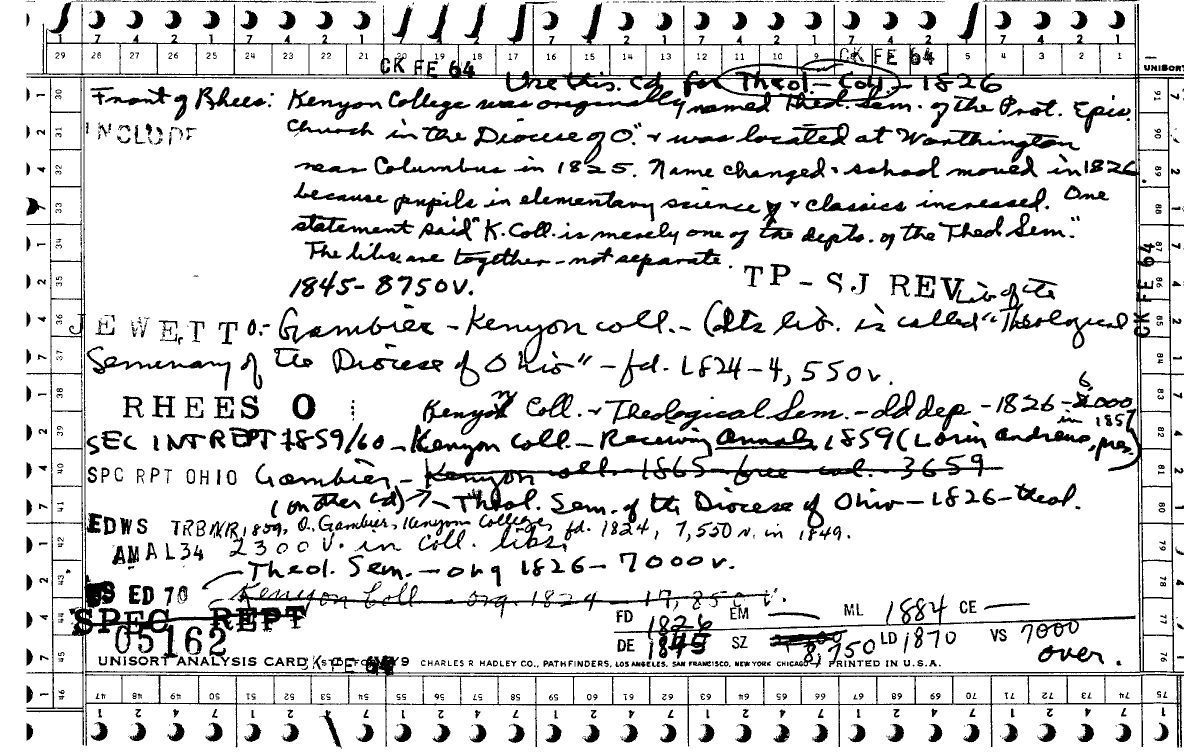 1 7 4 2 1 7 4 2 1 7 4 2 1 7 4 2 1 7 4 2 1 7 4 2 1 7 4 2 1
29 28 27 26 25 24 23 22 21 20 19 18 17 16 15 14 13 12 11 10 9 8 7 6 5 4 3 2 1
CK FE 64 CK FE 64 UNISORT
Use this cd for Theol - Coll - 1826
Front of Rhees: Kenyon College was originally named Theol. Sem. of the Prot. Epis.
INCLUDE Church in the Diocese of O." & was located at Worthington
near Columbus in 1825. Name changed & school moved in 1826
because pupils in elementary science & classics increased. One
statement said "K. Coll. is merely one of the depts. of the Theol Sem."
The libs. are together - not separate.
TP - SJ REV
1845 - 8750 v. Lib of the
JEWETT O:- Gambier - Kenyon coll. - (Its lib. is called "Theological
Seminary of the Diocese of Ohio" - fd. 1824 - 4,550 v.
RHEES O Kenyon Coll. & Theological Sem. - old dep - 1826 - 6,000 in 1857
SEC INT REPT 1859/60 - Kenyon Coll. - Receiving Annals 1859 (Lorin Andrews, pres)
SPC RPT OHIO Gambier - Kenyon coll. 1865 - free cat. 3659
(on other cd) → - Theol. Sem. of the Diocese of Ohio - 1826 - theol.
EDWS TRBNR, 1859, O. Gambier, Kenyon Colleges, fd. 1824, 7,550 v. in 1849.
AM AL 34 2300 v. in coll. libs.
Theol. Sem. - org 1826 - 7000 v.
US ED 70 Kenyon Coll - org. 1824 - 17,850 v.
SPEC REPT
05162
FD 1826 EM — ML 1884 CE —
DE 1845 SZ 8,750 LD 1870 VS 7000
over.
UNISORT ANALYSIS CARD CK FE 64 CHARLES R HADLEY CO., PATHFINDERS, LOS ANGELES, SAN FRANCISCO, NEW YORK CHICAGO, PRINTED IN U.S.A.
CK FE 64
46 47 48 49 50 51 52 53 54 55 56 57 58 59 60 61 62 63 64 65 66 67 68 69 70 71 72 73 74 75